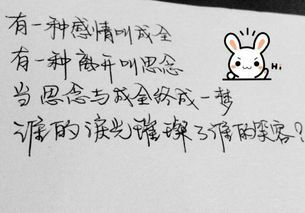 有一种感情叫成全
有一种离开叫思念
当思念与成全终成一梦
谁的泪光璀璨了谁的笑容?
Hi